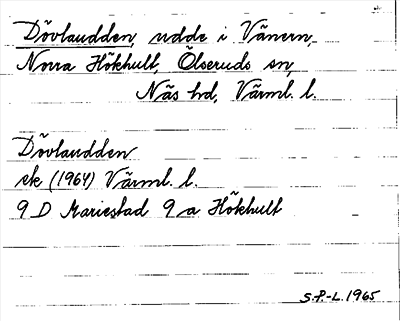 Dövlaudden, udde i Vänern,
Norra Hökhult, Ölseruds sn,
Näs hrd, Värml. l.
Dövlaudden
ek (1964) Värml. l.
9 D Mariestad 9 a Hökhult
S.P.-L. 1965